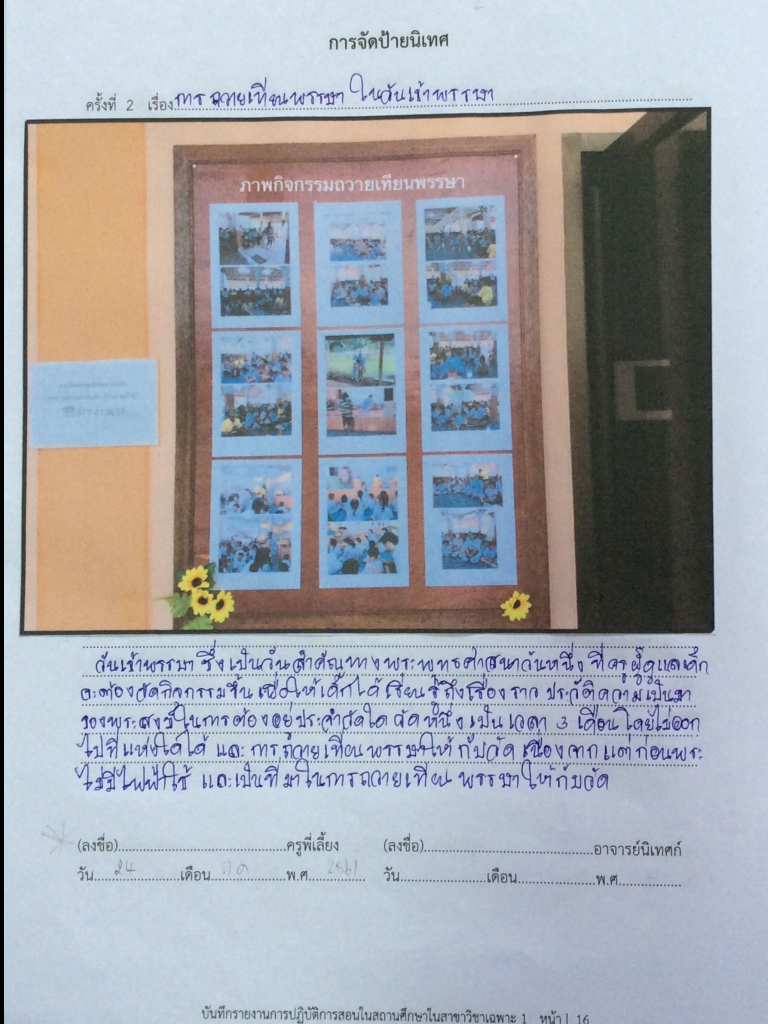 การจัดป้ายนิเทศ
ครั้งที่ 2 เรื่อง การถวายเทียนพรรษา ในวันเข้าพรรษา
ภาพกิจกรรมถวายเทียนพรรษา
วันเข้าพรรษา ซึ่งเป็นวันสำคัญทางพระพุทธศาสนาวันหนึ่ง ที่ครูผู้ดูแลเด็ก
จะต้องจัดกิจกรรมขึ้น เพื่อให้เด็กได้เรียนรู้ถึงเรื่องราว ประวัติความเป็นมา
ของพระสงฆ์ในการต้องอยู่ประจำวัดใด วัดหนึ่ง เป็นเวลา 3 เดือนโดยไม่ออก
ไปที่แห่งใดได้ และการถวายเทียนพรรษาให้กับวัด เนื่องจากแต่ก่อนพระ
ไม่มีไฟฟ้าใช้ และเป็นที่มาในการถวายเทียน พรรษาให้กับวัด
(ลงชื่อ)..............................ครูพี่เลี้ยง (ลงชื่อ)..............................อาจารย์นิเทศก์
วัน 24 เดือน ก.ค พ.ศ. 2561 วัน....................เดือน....................พ.ศ...............
บันทึกรายงานการปฏิบัติการสอนในสถานศึกษาในสาขาวิชาเฉพาะ 1 หน้า | 16